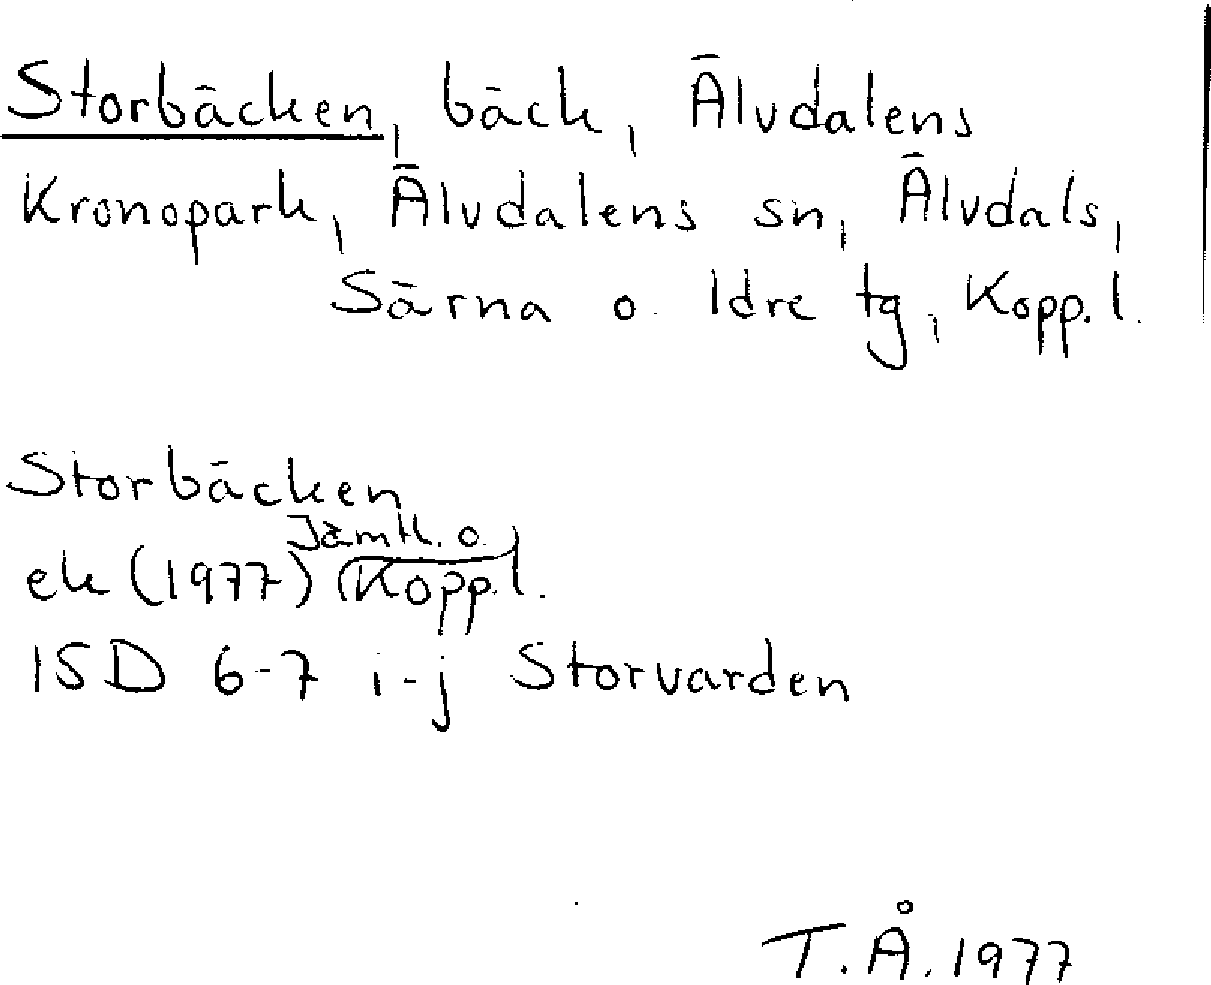 Storbäcken, bäck, Älvdalens
Kronopark, Älvdalens sn, Älvdals,
Särna o. Idre tg, Kopp. l.
Storbäcken
Jämtl. o.
ek (1977) Kopp. l.
15D 6-7 i-j Storvarden
T.Å. 1977